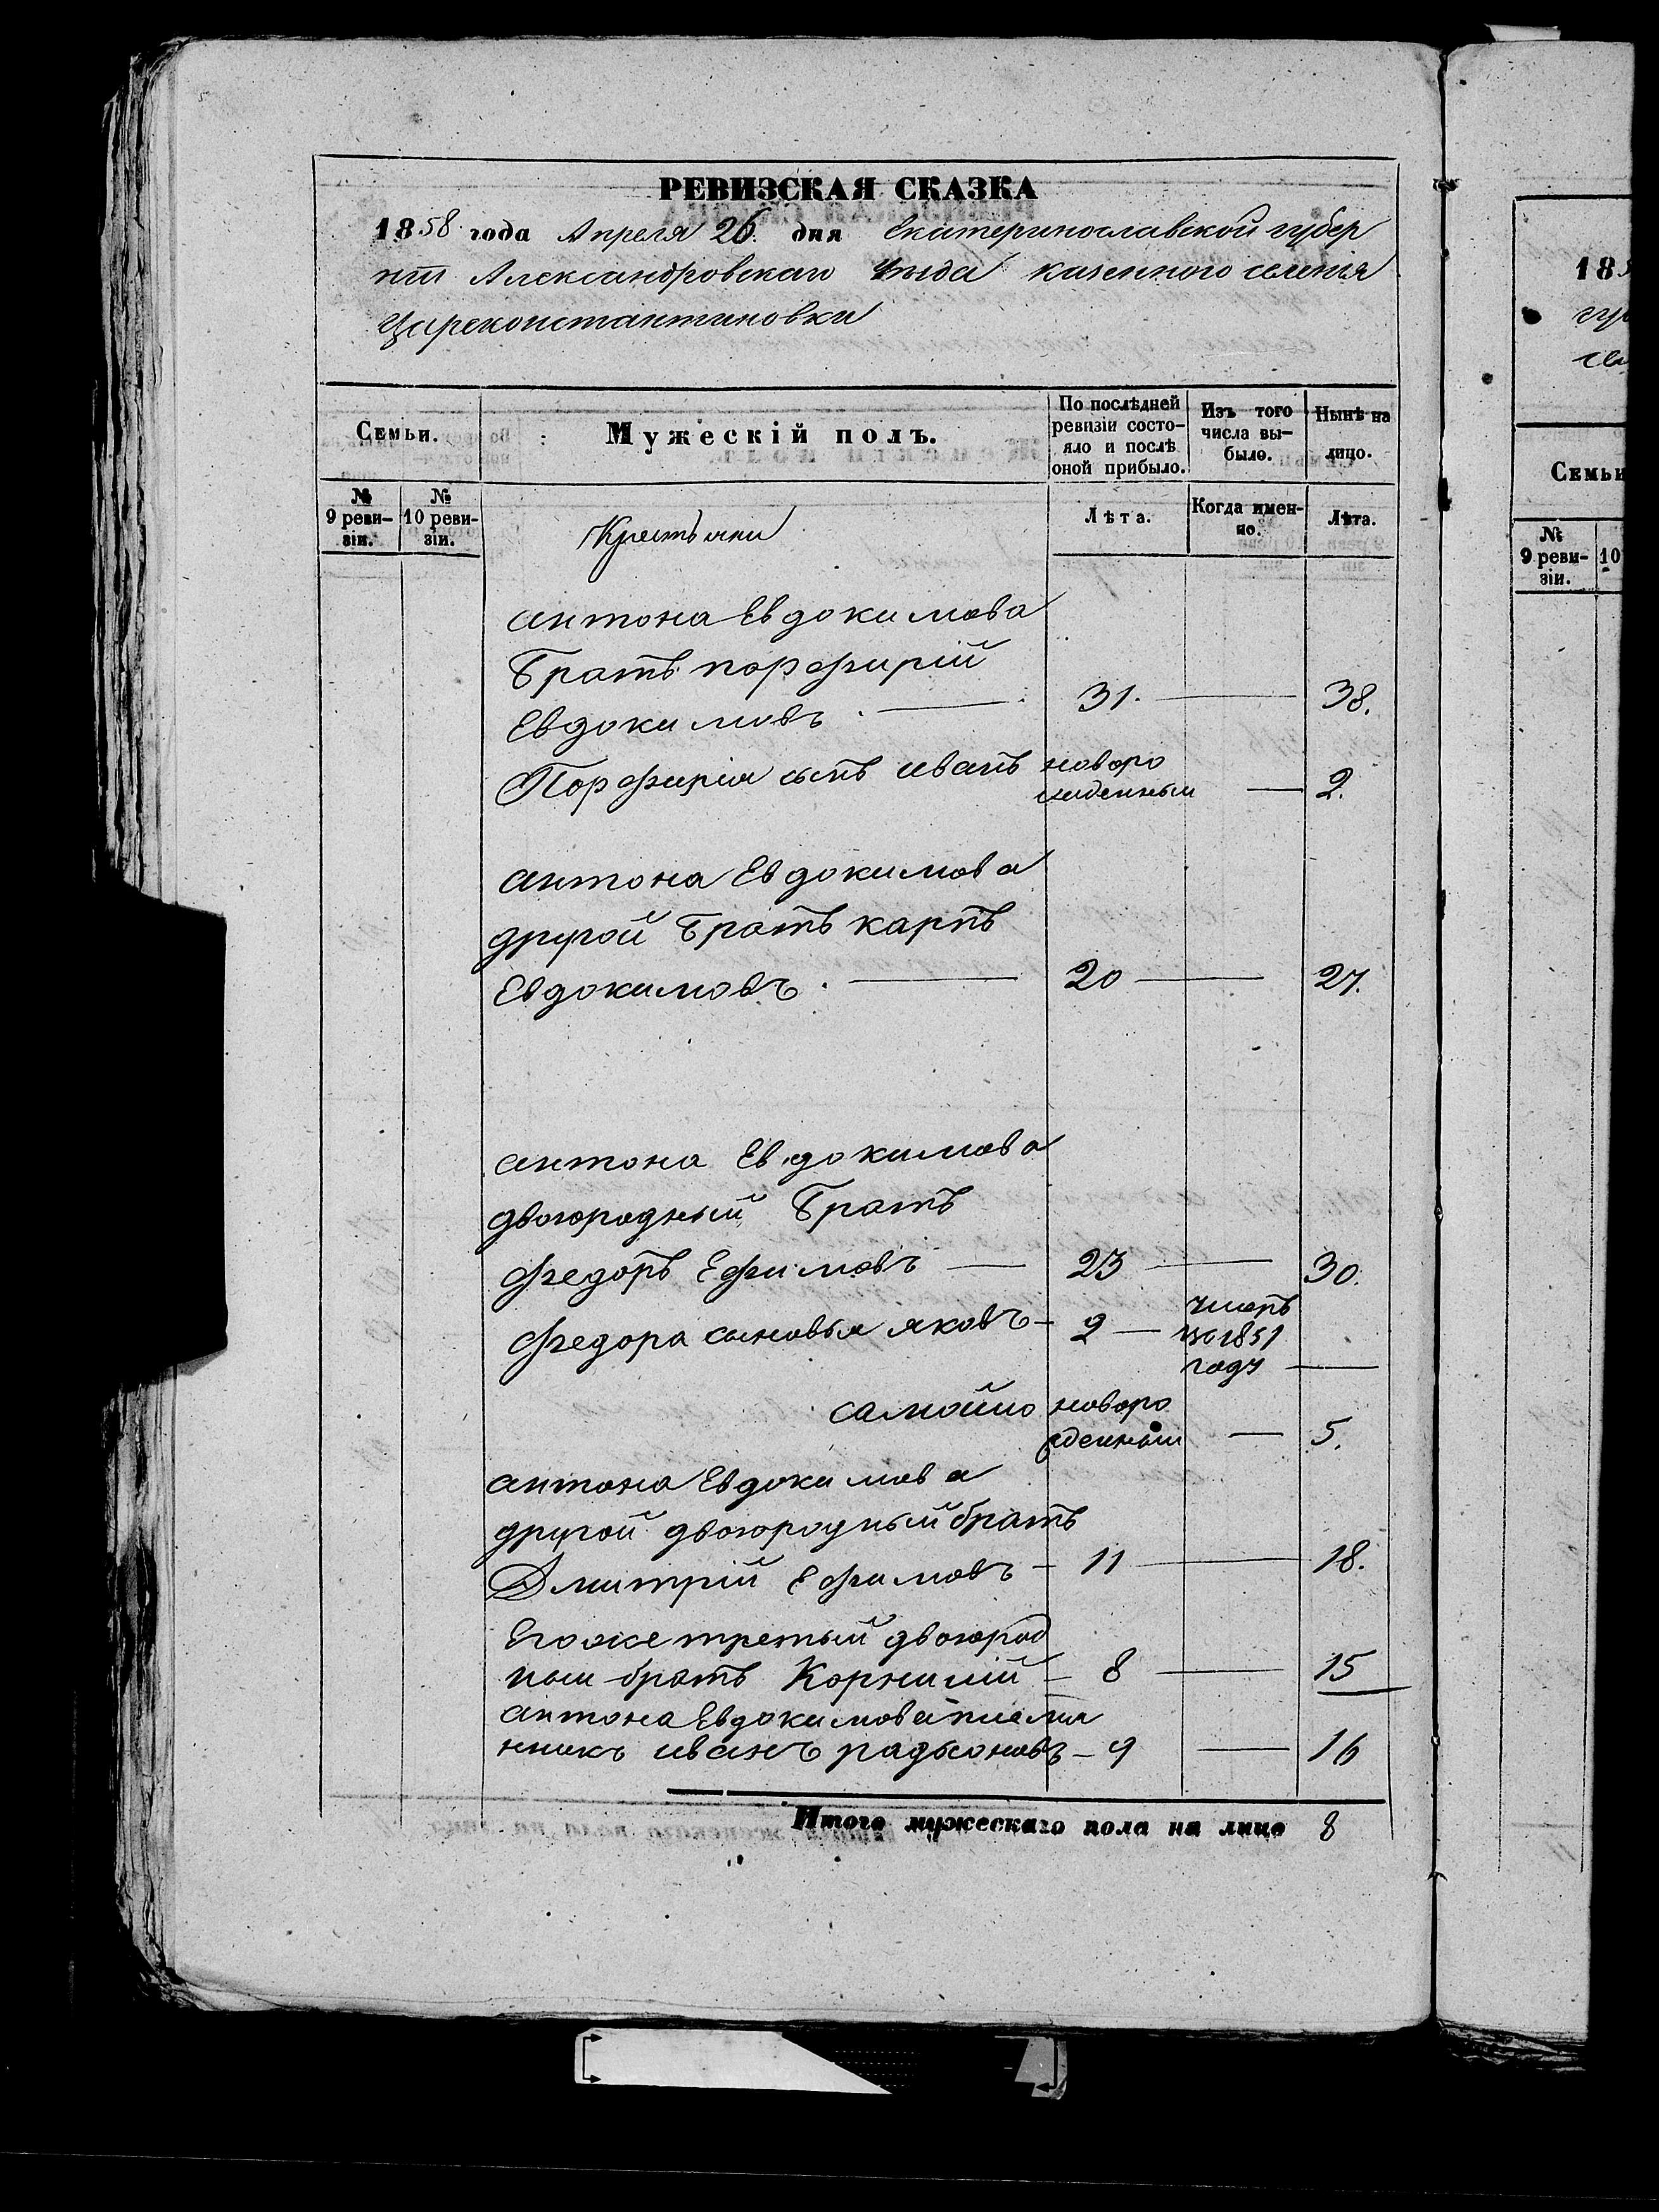 РЕВИЗСКАЯ СКАЗКА
1858 года Апреля 26. дня Екатеринославской губер
нии Александровскаго уѣзда казенного селенія
Цареконстантиновки
Семьи.
Мужескій полъ.
По послѣдней ревизіи состо-
яло и послѣ
оной прибыло.
Изъ того
числа вы-
было.
Нынѣ на
лицо.
№
9 реви-
зіи.
№
10 реви-
зіи.
Крестьяни
Лѣта.
Когда имен-
но.
Лѣта.
антона Евдокимова
Братъ порфирій
Евдокимовъ 31. 38.
Порфирія сынъ иванъ новоро
жденный 2.
антона Евдокимова
другой Братъ карпъ
Евдокимовъ. 20 27.
антона Евдокимова
двоюродный Братъ
федоръ Ефимовъ 23 30.
федора сыновья яковъ 2 умеръ
въ 1851
году
самойло новоро
жденный 5.
антона Евдокимова
другой двоюродный братъ
Дмитрій Ефимовъ 11 18.
Егоже третьий двоюрод
ный братъ Корнилій 8 15
антона Евдокимова племя
нникъ иванъ радионовъ 9 16
Итого мужескаго пола на лицо 8
18
гу
Семьи
№
9 реви-
зіи.
10